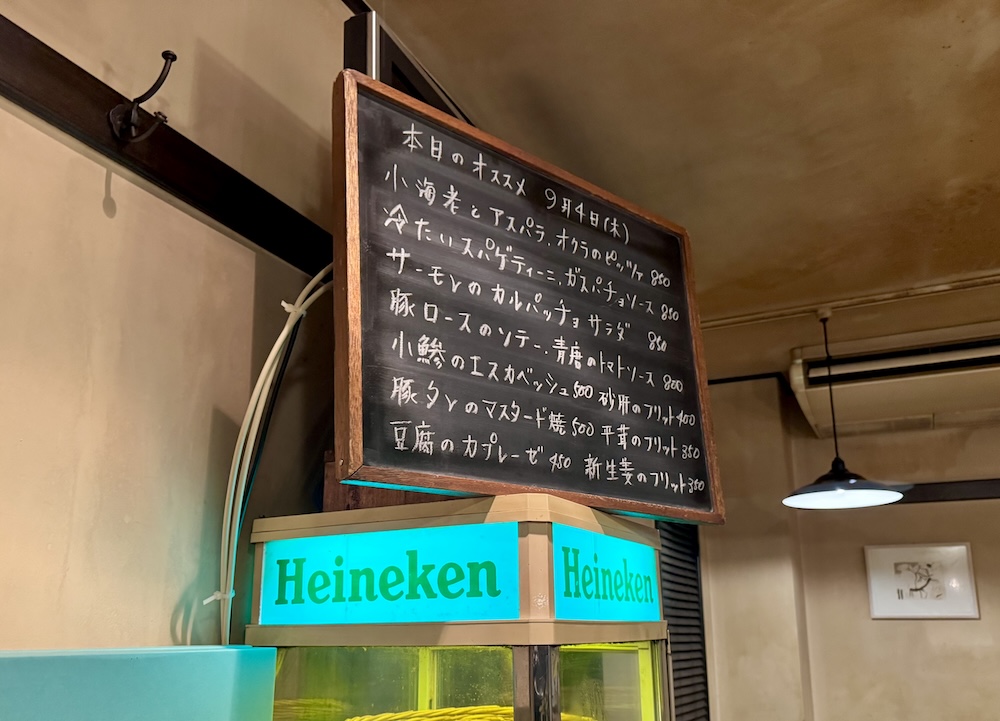 本日のオススメ 9月4日(木)
小海老とアスパラ、オクラのピッツァ 850
冷たいスパゲティーニ、ガスパチョソース 850
サーモンのカルパッチョ サラダ 850
豚ロースのソテー、青唐のトマトソース 800
小鯵のエスカベッシュ 500 砂肝のフリット 400
豚タンのマスタード焼 500 平茸のフリット 350
豆腐のカプレーゼ 450 新生姜のフリット 350
Heineken Heineken